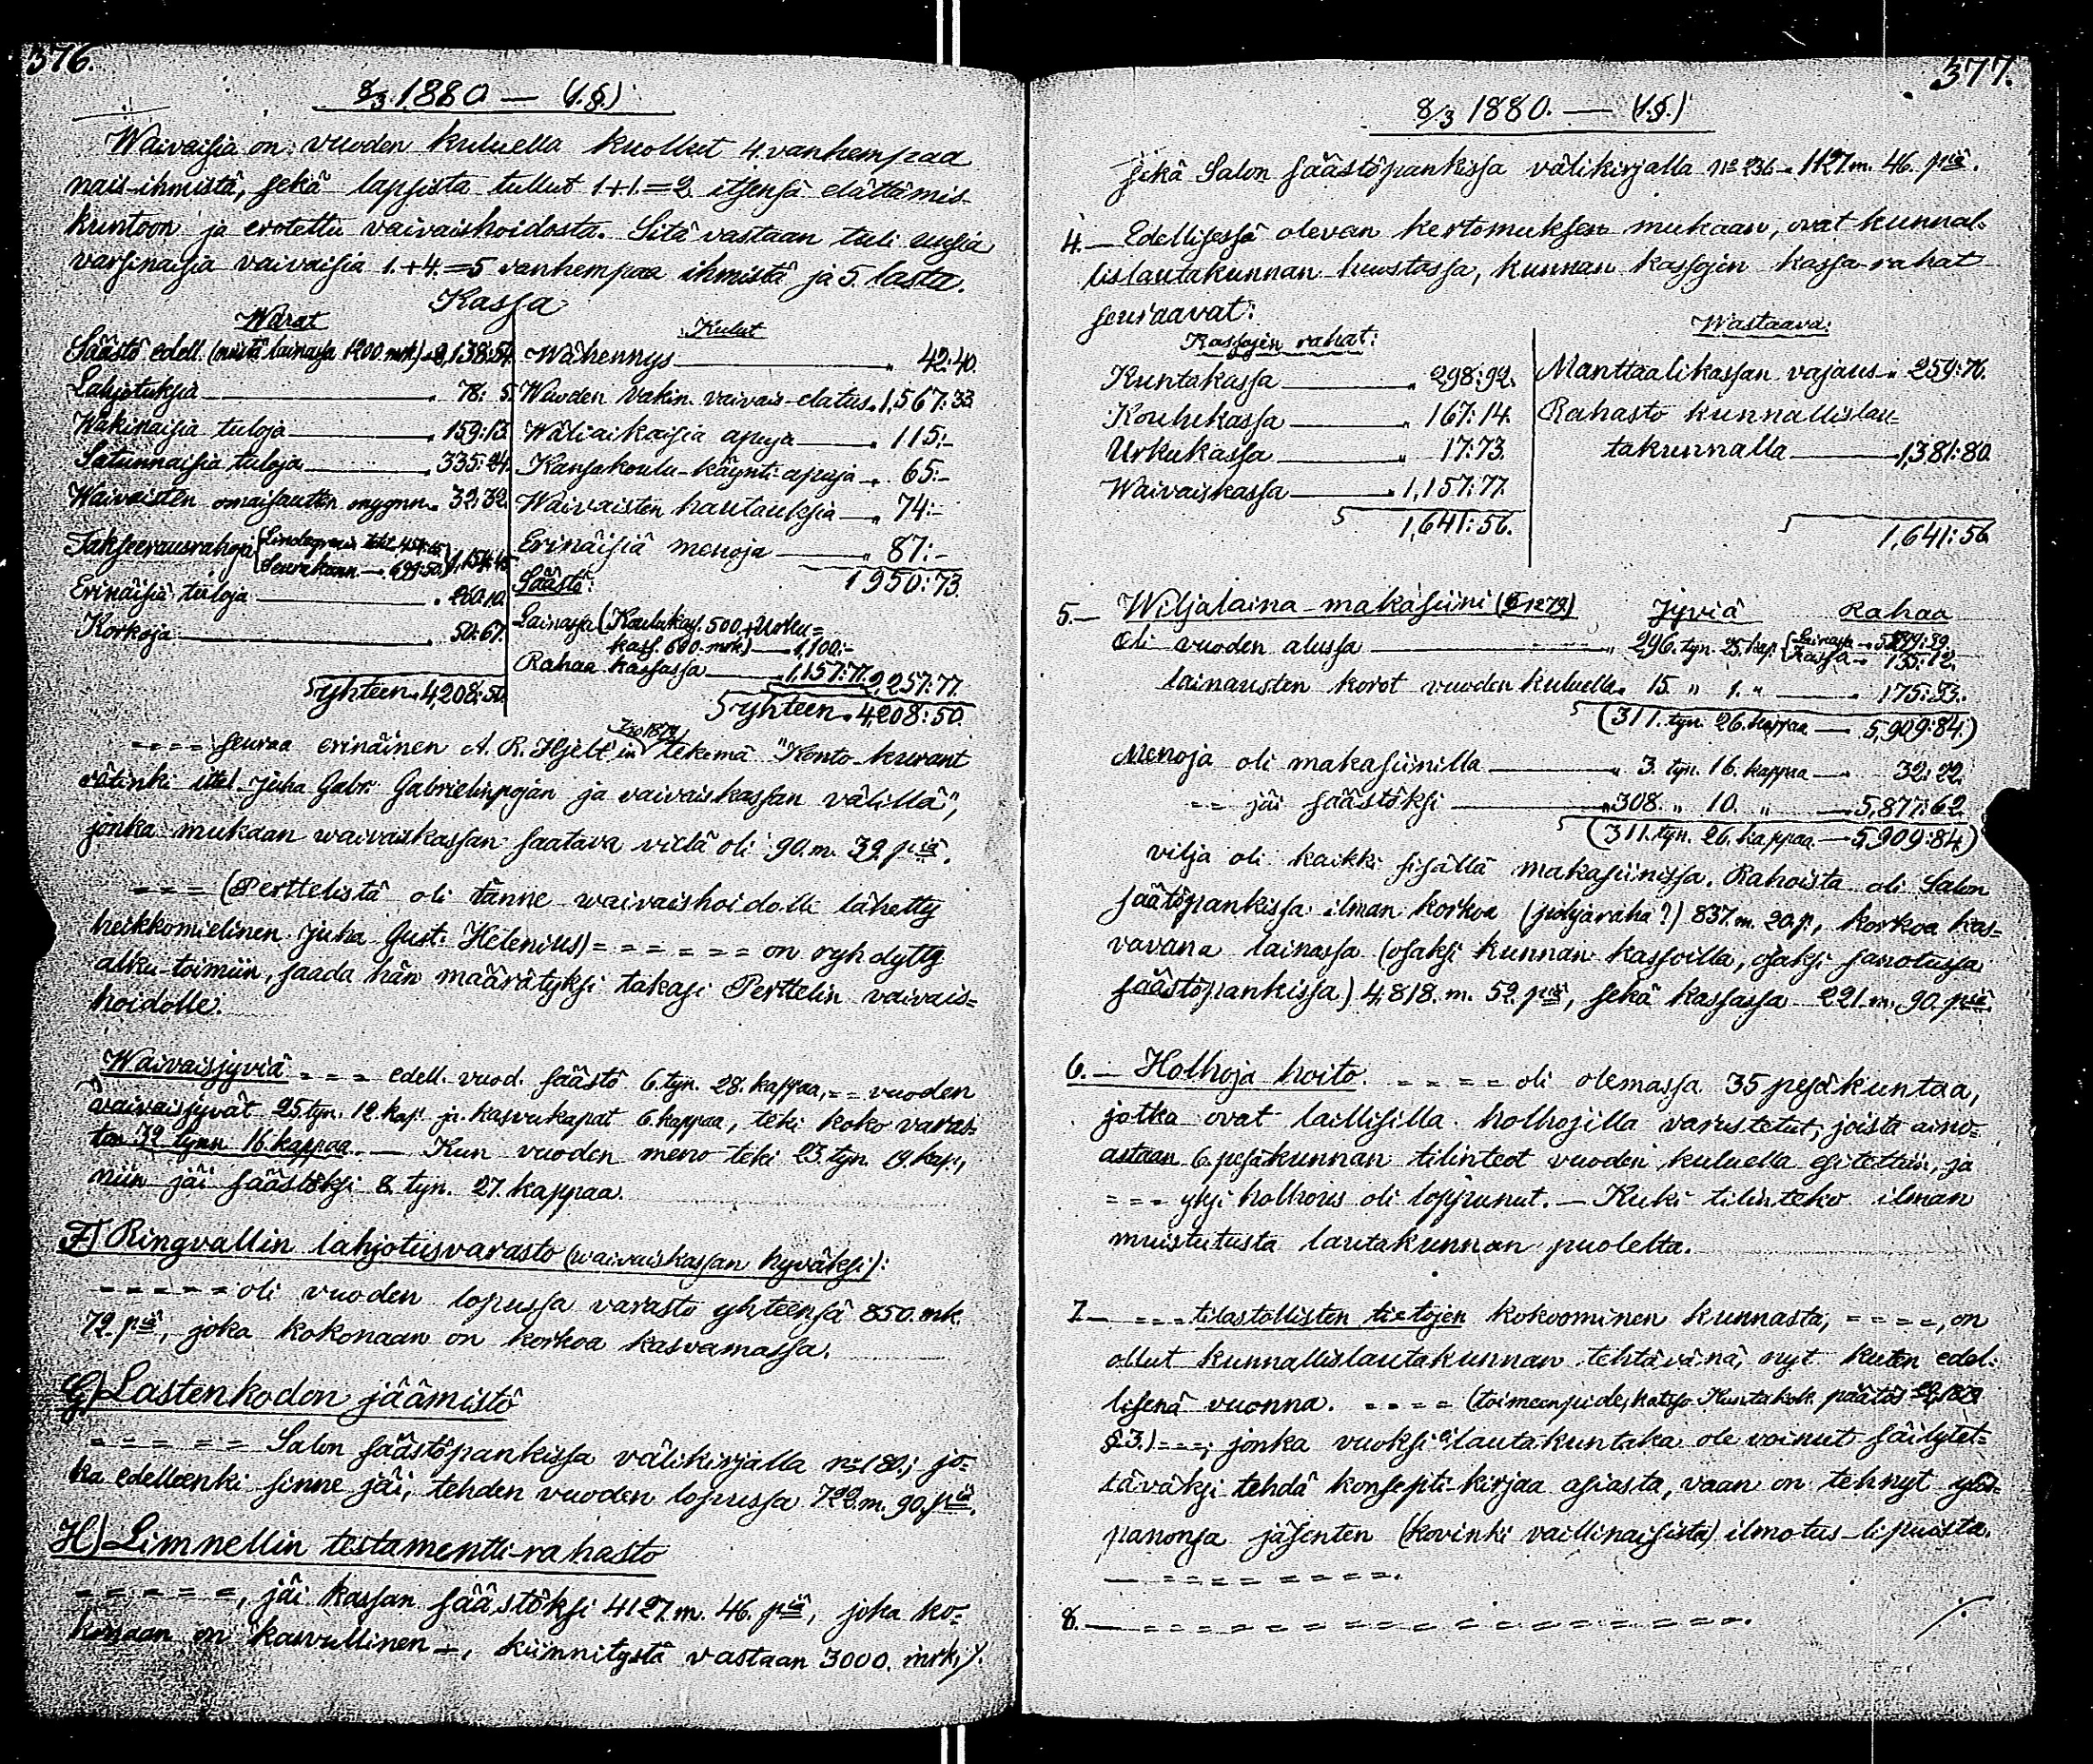 376.
8/3 1880 — (1.§.)
Waivaisia on vuoden kuluella kuollut 4. vanhempaa
nais-ihmistä, sekä lapsista tullut 1.+1.=2 itsensä elättämis-
kuntoon ja erotettu vaivaishoidosta. Sitä vastaan tuli uusia
varsinaisia vaivaisia 1.+4.=5 vanhempaa ihmistä ja 5. lasta.
Kassa
Warat
Säästö edell. (mistä lainassa 1200 mrk.) „ 2,138:54.
Lahjotuksia — „ 78: 5.
Wakinaisia tuloja — „ 159:13.
Satunnaisia tuloja — „ 335:24.
Waivaisten omaisuutten myynn. „ 32:32.
Takseerausrahoja {Lindegrenin tekt. 454:95.
{Seurakunn. — 699:50.} 1,154:45.
Erinäisiä tuloja — „ 260:10.
Korkoja — „ 50:67.
Syhteen „ 4,208:50.
Kulut
Wähennys — „ 42:40.
Wuoden vakin. vaivais-elatus „ 1,567:33.
Wäliaikaisia apuja — „ 115:-
Kansakoulu-käynti-apuja „ 65:-
Waivaisten hautauksia — „ 74:-
Erinäisiä menoja — „ 87:-
1950:73.
Säästö:
Lainassa (Koulukass. 500 + Urku=
kass. 600 mrk) — 1,100:-
Rahaa kassassa — 1,157:77. 2,257:77.
Syhteen „ 4,208:50.
---- seuraa erinäinen A. R. Hjelt'in tekemä "Konto-kurant
rätinki itel. Juha Gabr. Gabrielinpojan ja vaivaiskassan välillä",
jonka mukaan waivaiskassan saatava vielä oli 90. m. 39. piä.
--- (Perttelistä oli tänne waivaishoidolle lähetty
heikkomielinen Juha Gust. Helenius) ------ on ryhdytty
alku-toimiin, saada hän määrätyksi takasi Perttelin vaivais=
hoidolle.
Waivaisjyviä --- edell. vuod. säästö 6. tyn. 28. kappaa, -- vuoden
vaivaisjyvät 25 tyn. 12. kap. ja kasvukapat 6. kappaa, teki koko varas-
ton 32 tynn 16. kappaa. — Kun vuoden meno teki 23. tyn. 19. kap.,
niin jäi säästöksi 8. tyn. 27. kappaa.
F) Ringvallin lahjotusvarasto (waivaiskassan hyväksi):
----- oli vuoden lopussa varasto yhteensä 850. mk.
72. piä, joka kokonaan on korkoa kasvamassa.
G) Lastenkodon jäämistö
------ Salon säästöpankissa välikirjalla no 180.; jo=
ka edelleenki sinne jäi, tehden vuoden lopussa 722. m. 90. piä.
H) Limnellin testamentti-rahasto
-----, jäi kassan säästöksi 4127. m. 46. piä, joka ko=
konaan on kasvullinen —, kiinnitystä vastaan 3000. mrk.,
377.
8/3 1880. — (1.§.)
sekä Salon säästöpankissa välikirjalla no 236 — 1127. m. 46. piä.
4. — Edellisessä olevan kertomuksen mukaan, ovat kunnal-
lislautakunnan huostassa, kunnan kassojen kassa-rahat
seuraavat:
Kassojen rahat:
Kuntakassa — „ 298:92.
Koulukassa — „ 167:14.
Urkukassa — „ 17:73.
Waivaiskassa — „ 1,157:77.
S 1,641:56.
Wastaava:
Manttaalikassan vajaus „ 259:76.
Rahasto kunnallislau=
takunnalla — 1,381:80.
S 1,641:56
5. — Wiljalaina-makasiini (1879) Jyviä Rahaa
Oli vuoden alussa — „ 296. tyn. 25. kap. {Lainassa — 5,599:39.
{Kassa — 135:12.
lainausten korot vuoden kuluella „ 15. „ 1. „ — „ 175:33.
S (311. tyn. 26. kappaa — 5,909:84.)
Menoja oli makasiinilla — „ 3. tyn. 16. kappaa — 32:22.
-- jäi säästöksi — „ 308. „ 10. „ — 5,877:62.
S (311. tyn. 26. kappaa. — 5,909:84.)
vilja oli kaikki sisällä makasiinissa. Rahoista oli Salon
säätöpankissa ilman korkoa (pohjaraha?) 837. m. 20. p., korkoa kas=
vavana lainassa (osaksi kunnan kassoilla, osaksi sanotussa
säästöpankissa) 4,818. m. 52. piä, sekä kassassa 221. m. 90. piä.
6. — Holhoja hoito. ----- oli olemassa 35 pesäkuntaa,
jotka ovat laillisilla holhojilla varustetut, joista aino=
astaan 6. pesäkunnan tilinteot vuoden kuluella esitettiin, ja
--- yksi holhous oli loppunut. — Kuki tilinteko ilman
muistutusta lautakunnan puolelta.
7. — --- tilastollisten tietojen kokoominen kunnasta, ----, on
ollut kunnallislautakunnan tehtävänä, nyt kuten edel-
lisenä vuonna. ---- (toimeenpide, katso Kuntakok. päätös
§ 3.) ---; jonka vuoksi ei lautakuntaka ole voinut säilytet-
täväksi tehdä konsepti-kirjaa asiasta, vaan on tehnyt ylös-
panonsa jäsenten (kovinki vaillinaisista) ilmotus-lipuista.
— ---------.
8. — --------------- ./.